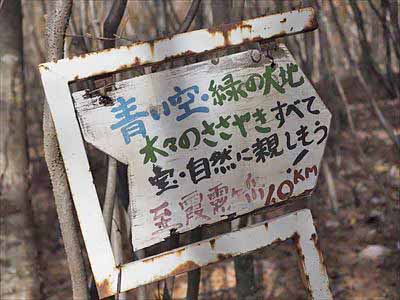 青い空・緑の大地
木々のささやきすべて
宝・自然に親しもう
至霞露ヶ岳 1.0KM